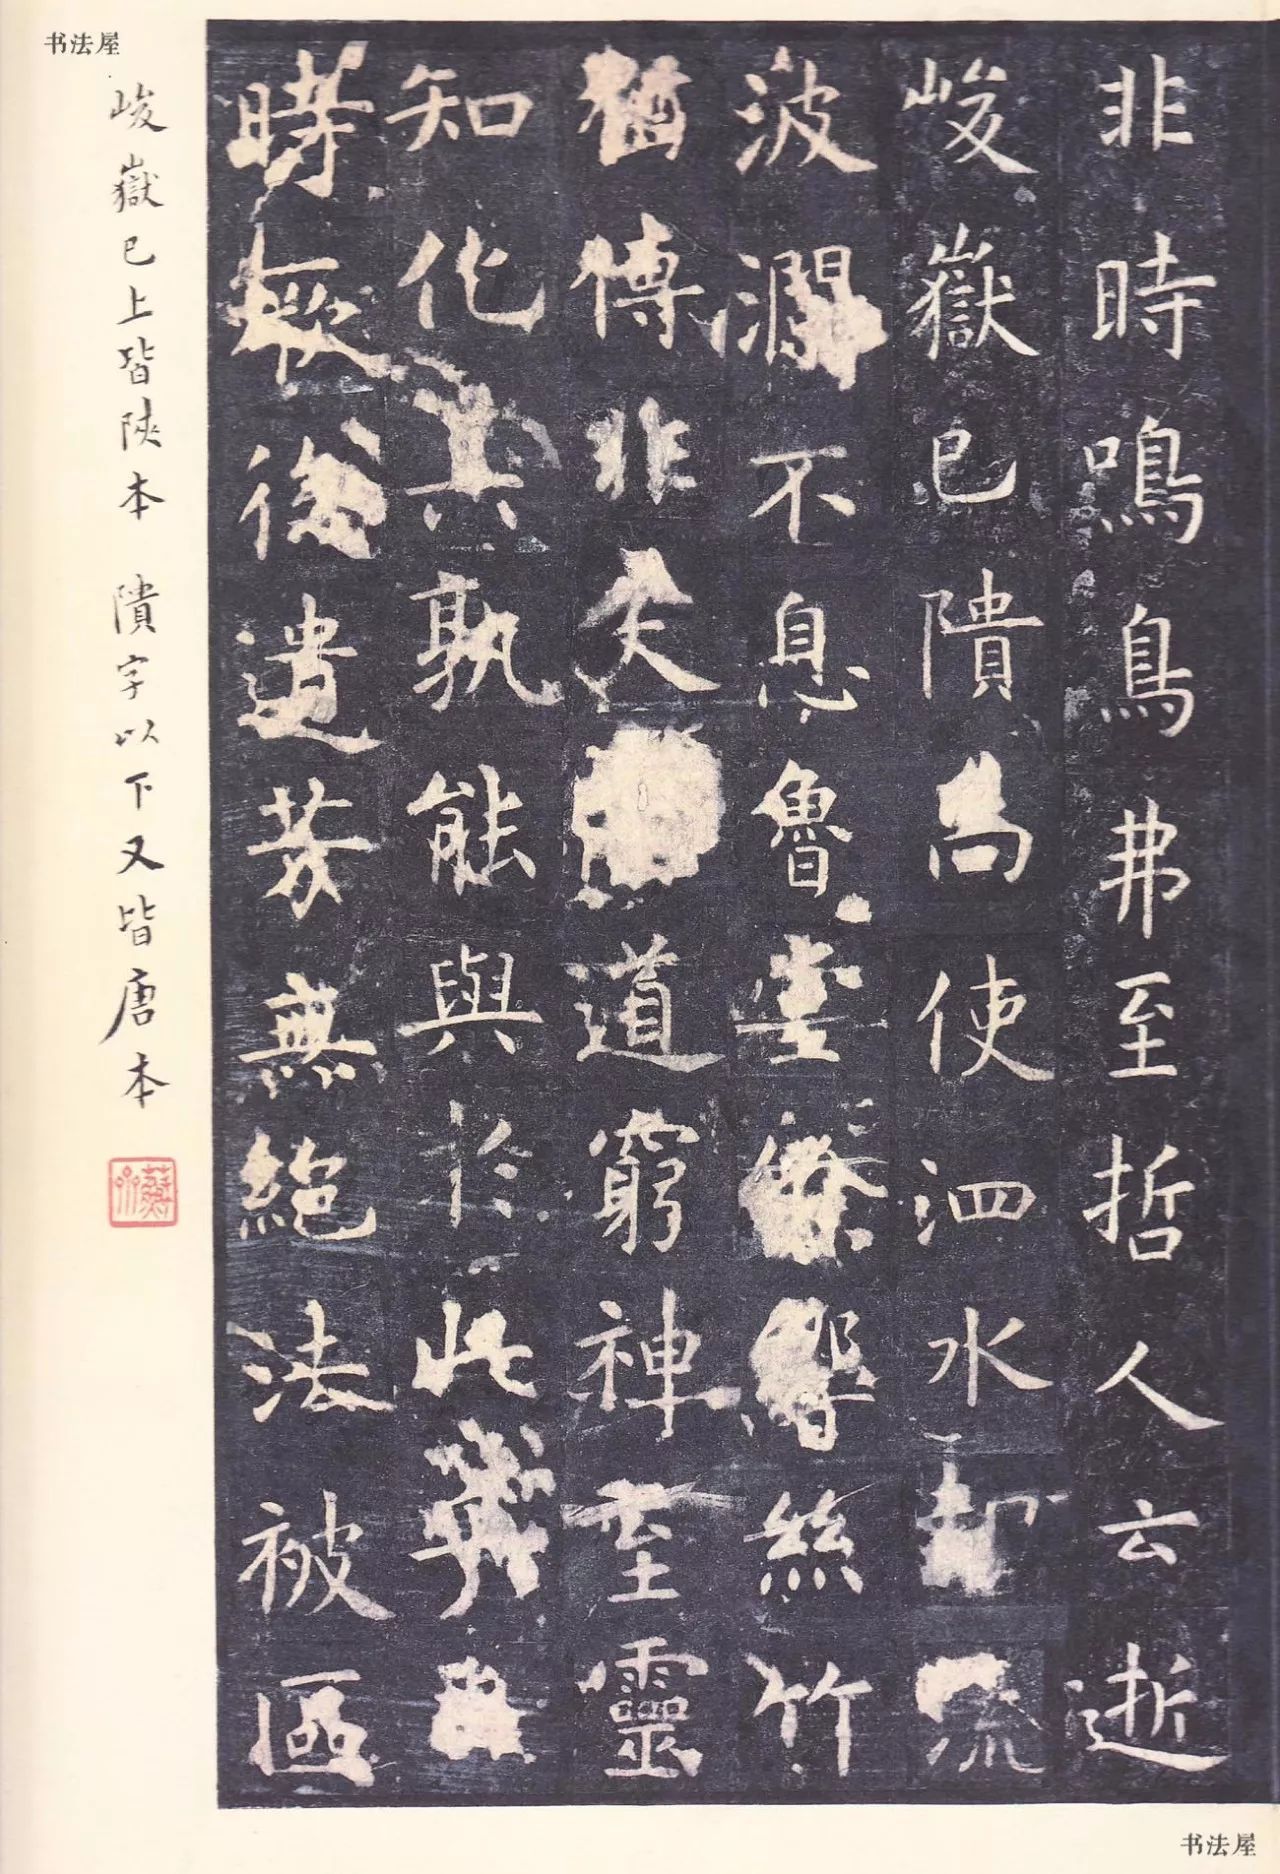 书法屋
非時鳴鳥弗至哲人云逝
峻嶽已隤尚使泗水却流
波瀾不息魯堂餘響絲竹
猶傳非夫道窮神至靈
知化其孰能與於此乎
時厥後遺芳無絕法被區
峻嶽已上皆陝本 隤字以下又皆唐本
书法屋